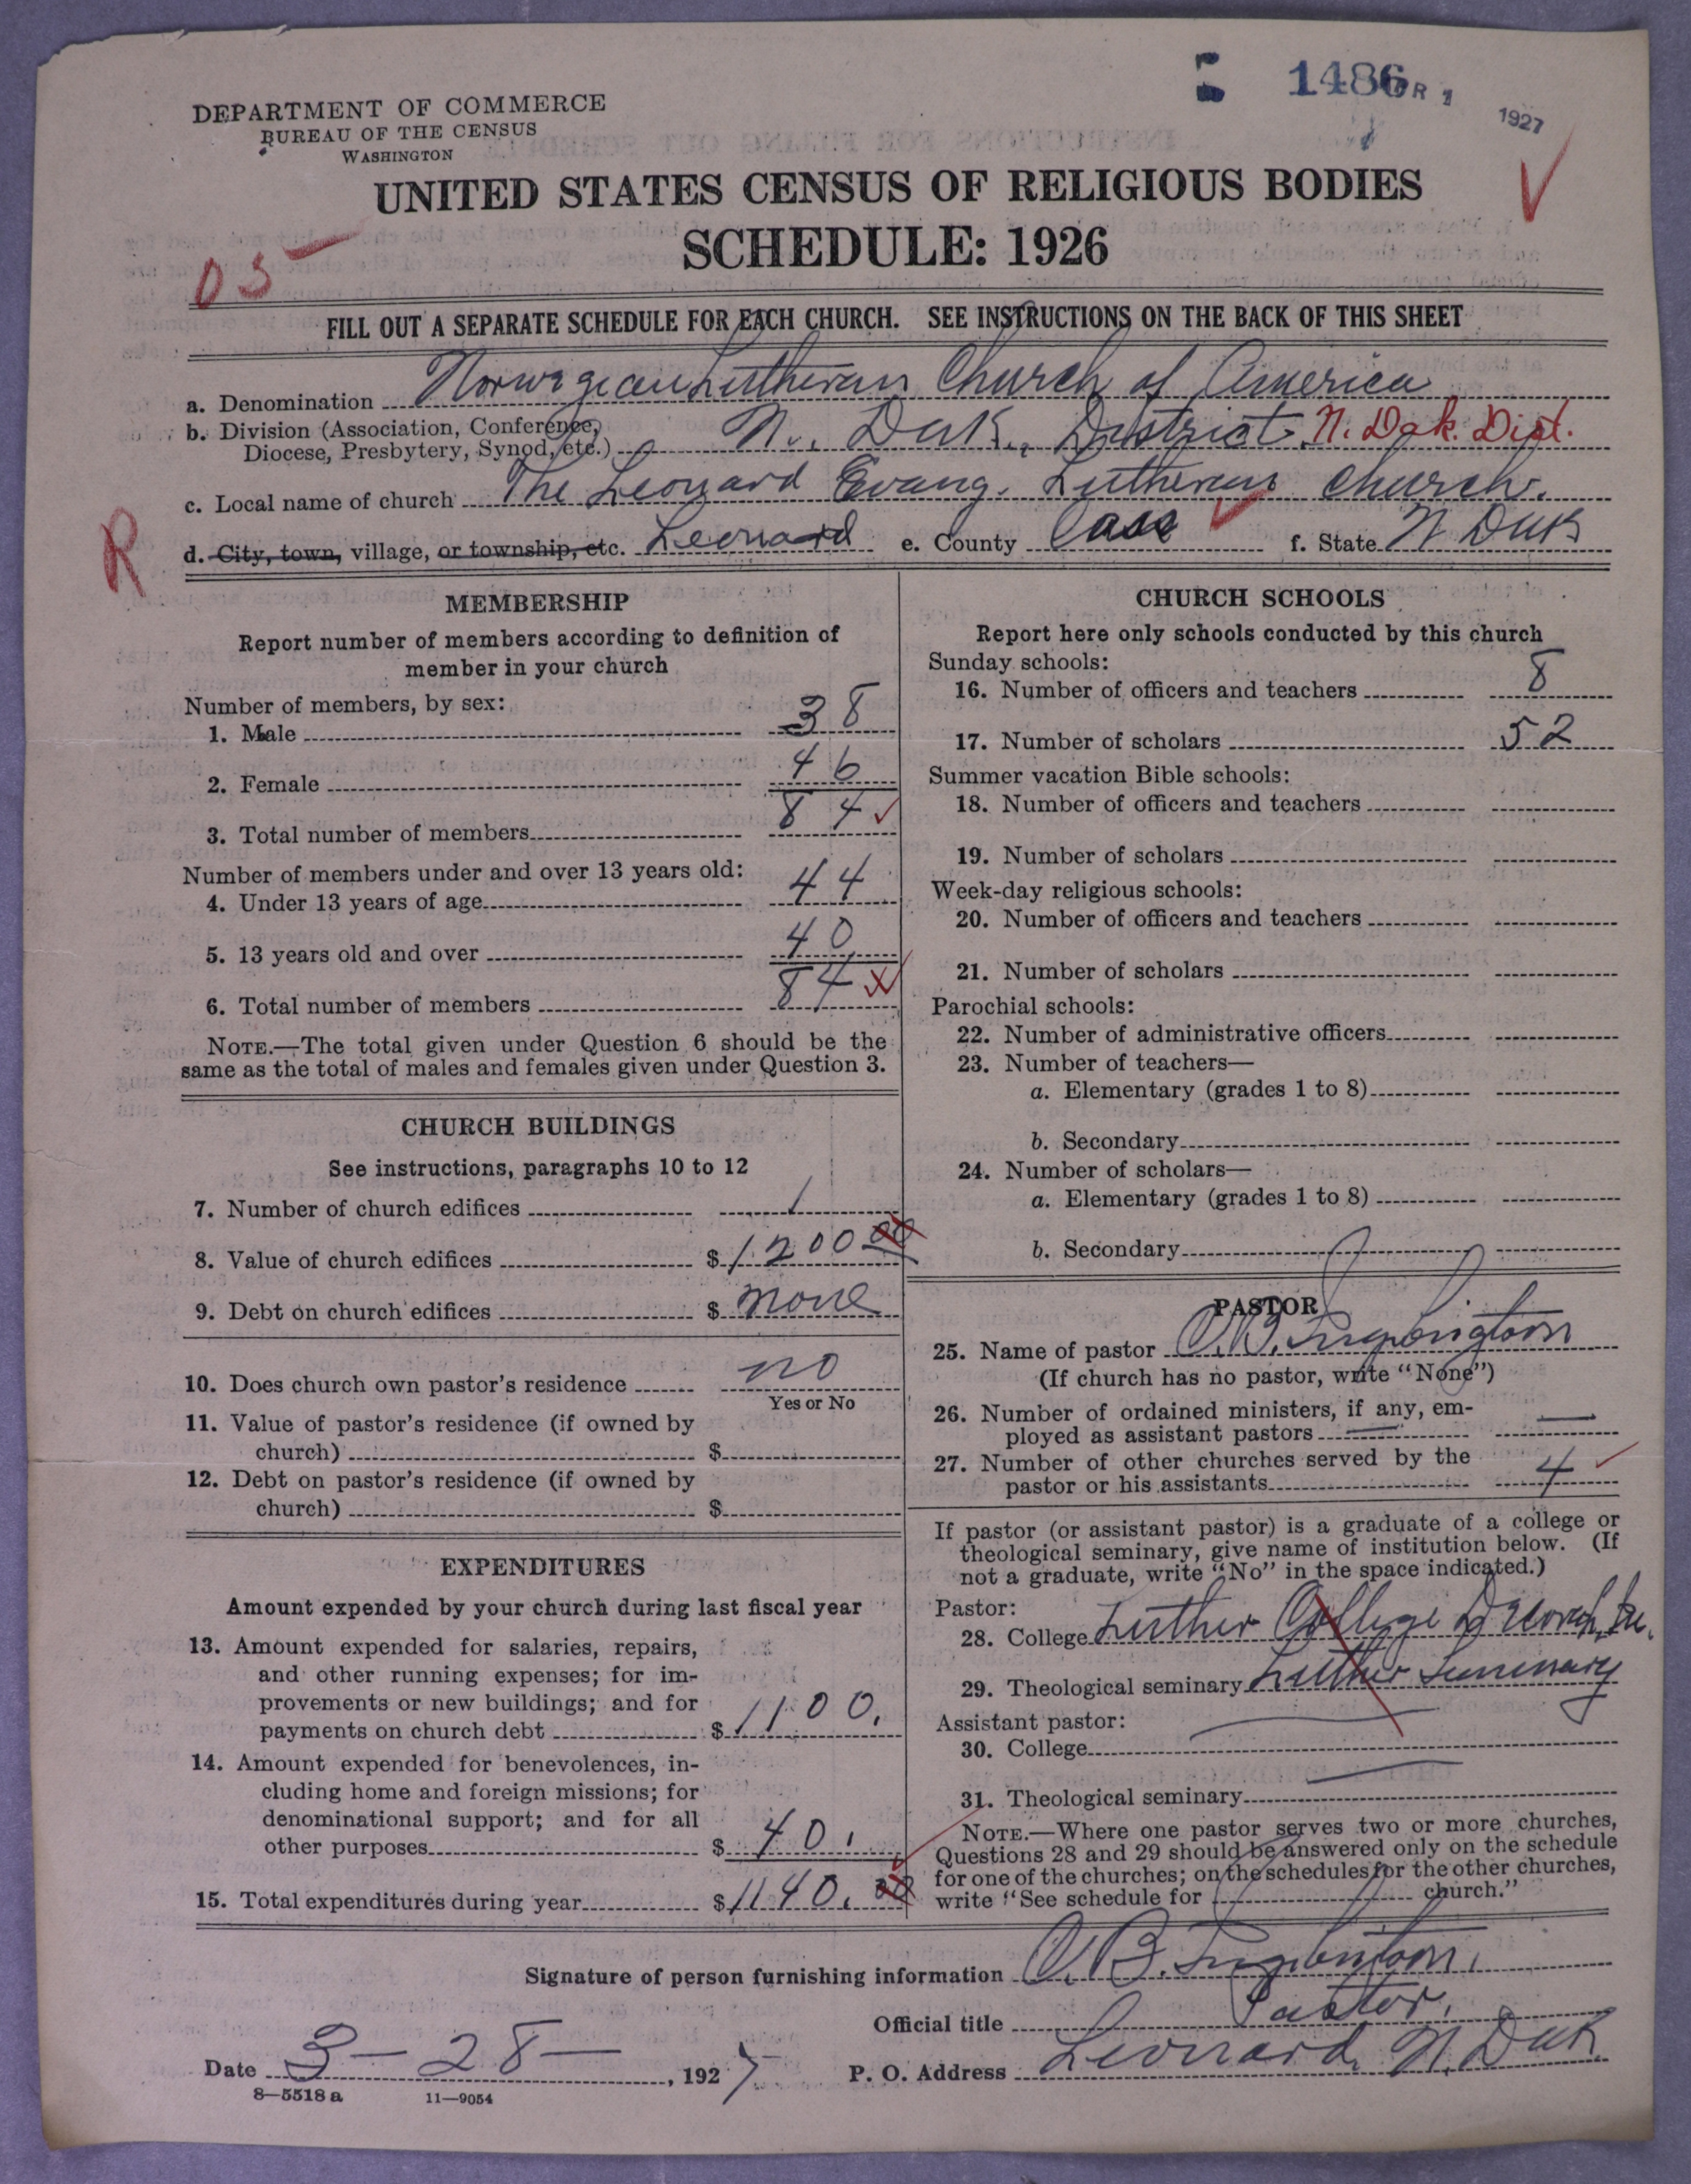 1486 1927
DEPARTMENT OF COMMERCE
BUREAU OF THE CENSUS
WASHINGTON
UNITED STATES CENSUS OF RELIGIOUS BODIES
SCHEDULE: 1926
FILL OUT A SEPARATE SCHEDULE FOR EACH CHURCH. SEE INSTRUCTIONS ON THE BACK OF THIS SHEET
a. Denomination Norwegian Lutheran Church of America
b. Division (Association, Conference,
Diocese, Presbytery, Synod, etc.) N. Dak. District N. Dak. Dist.
c. Local name of church The Leonard Evang. Lutheran Church.
R
d. City, town, village, or township, etc. Leonard e. County Cass f. State N Dak
MEMBERSHIP
Report number of members according to definition of
member in your church
Number of members, by sex:
1. Male 38
2. Female 46
3. Total number of members 84
Number of members under and over 13 years old:
4. Under 13 years of age 44
5. 13 years old and over 40
6. Total number of members 84
NOTE.—The total given under Question 6 should be the
same as the total of males and females given under Question 3.
CHURCH BUILDINGS
See instructions, paragraphs 10 to 12
7. Number of church edifices 1
8. Value of church edifices $ 1200 00
9. Debt on church edifices $ none
10. Does church own pastor's residence no
Yes or No
11. Value of pastor's residence (if owned by
church) $
12. Debt on pastor's residence (if owned by
church) $
EXPENDITURES
Amount expended by your church during last fiscal year
13. Amount expended for salaries, repairs,
and other running expenses; for im-
provements or new buildings; and for
payments on church debt $ 1100.
14. Amount expended for benevolences, in-
cluding home and foreign missions; for
denominational support; and for all
other purposes $ 40.
15. Total expenditures during year $ 1140. 00
CHURCH SCHOOLS
Report here only schools conducted by this church
Sunday schools:
16. Number of officers and teachers 8
17. Number of scholars 52
Summer vacation Bible schools:
18. Number of officers and teachers
19. Number of scholars
Week-day religious schools:
20. Number of officers and teachers
21. Number of scholars
Parochial schools:
22. Number of administrative officers
23. Number of teachers—
a. Elementary (grades 1 to 8)
b. Secondary
24. Number of scholars—
a. Elementary (grades 1 to 8)
b. Secondary
PASTOR
25. Name of pastor
(If church has no pastor, write "None")
26. Number of ordained ministers, if any, em-
ployed as assistant pastors —
27. Number of other churches served by the
pastor or his assistants 4
If pastor (or assistant pastor) is a graduate of a college or
theological seminary, give name of institution below. (If
not a graduate, write "No" in the space indicated.)
Pastor:
28. College Luther College Decorah, Ia.
29. Theological seminary Luther Seminary
Assistant pastor:
30. College
31. Theological seminary
NOTE.—Where one pastor serves two or more churches,
Questions 28 and 29 should be answered only on the schedule
for one of the churches; on the schedules for the other churches,
write "See schedule for church."
Signature of person furnishing information
Official title Pastor.
Date 3-28-, 1927 P. O. Address Leonard, N. Dak
8—5518 a 11—9054